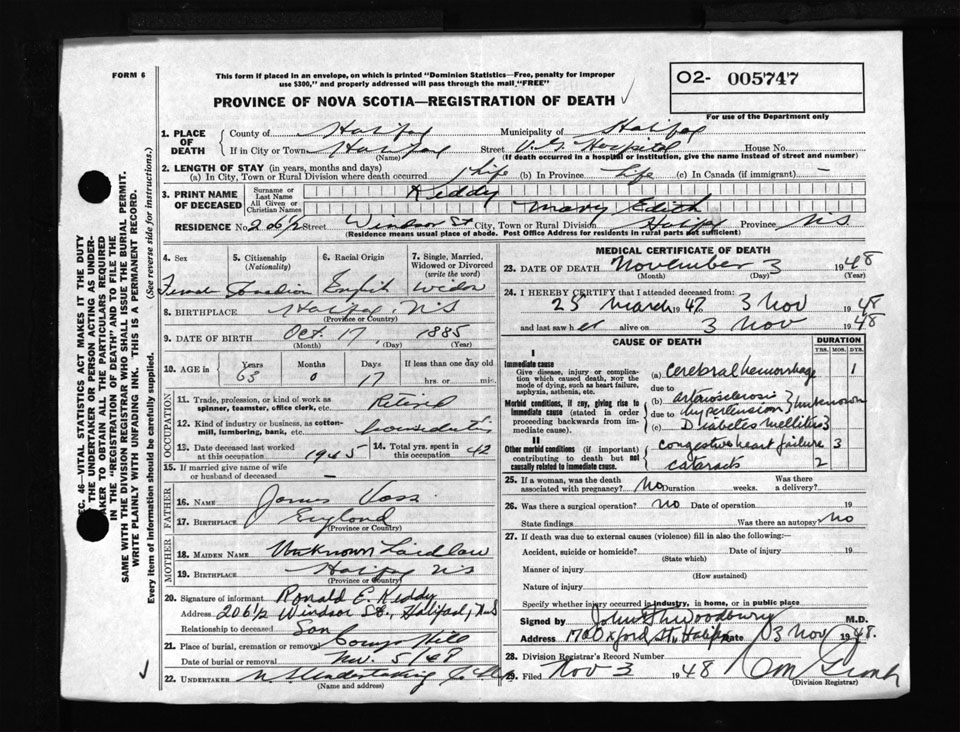 FORM 6
This form if placed in an envelope, on which is printed "Dominion Statistics—Free, penalty for improper
use $300," and properly addressed will pass through the mail "FREE"
O2- 005747
For use of the Department only
PROVINCE OF NOVA SCOTIA—REGISTRATION OF DEATH
1. PLACE OF DEATH
County of Halifax Municipality of Halifax
If in City or Town Halifax Street V.G. Hospital House No.
(Name) (If death occurred in a hospital or institution, give the name instead of street and number)
2. LENGTH OF STAY (in years, months and days)
(a) In City, Town or Rural Division where death occurred Life (b) In Province Life (c) In Canada (if immigrant) —
3. PRINT NAME OF DECEASED
Surname or Last Name Kiddy
All Given or Christian Names Mary Edith
RESIDENCE No. 206½ Street Windsor St City, Town or Rural Division Halifax Province NS
(Residence means usual place of abode. Post Office Address for residents in rural parts not sufficient)
4. Sex
5. Citizenship (Nationality)
6. Racial Origin
7. Single, Married, Widowed or Divorced (write the word)
Female Canadian English widow
8. BIRTHPLACE Halifax, NS
(Province or Country)
9. DATE OF BIRTH Oct. 17, 1885
(Month) (Day) (Year)
10. AGE in Years Months Days If less than one day old
63 0 17 hrs. or min.
OCCUPATION
11. Trade, profession or kind of work as spinner, teamster, office clerk, etc. Retired
12. Kind of industry or business, as cotton-mill, lumbering, bank, etc. houseduties
13. Date deceased last worked at this occupation 1945
14. Total yrs. spent in this occupation 42
15. If married give name of wife or husband of deceased —
FATHER
16. NAME James Voss
17. BIRTHPLACE England
(Province or Country)
MOTHER
18. MAIDEN NAME Unknown Laidlaw
19. BIRTHPLACE Halifax NS
(Province or Country)
20. Signature of informant Ronald E. Kiddy
Address 206½ Windsor St., Halifax, N.S
Relationship to deceased Son
21. Place of burial, cremation or removal Camp Hill
Date of burial or removal Nov. 5/48
22. UNDERTAKER N S Undertaking Co
(Name and address)
MEDICAL CERTIFICATE OF DEATH
23. DATE OF DEATH November 3 1948
(Month) (Day)
24. I HEREBY CERTIFY that I attended deceased from:
25 March 1947 3 Nov 1948
and last saw her alive on 3 Nov 1948
CAUSE OF DEATH
DURATION
YRS. MOS. DYS.
I
Immediate cause
Give disease, injury or complication which caused death, NOT the mode of dying, such as heart failure, asphyxia, asthenia, etc.
(a) Cerebral hemorrhage 1
due to
Morbid conditions, if any, giving rise to immediate cause (stated in order proceeding backwards from immediate cause).
(b) arteriosclerosis
due to hypertension unknown
(c) Diabetes mellitus 3
II
Other morbid conditions (if important) contributing to death but not causally related to immediate cause.
congestive heart failure 3
cataracts 2
25. If a woman, was the death associated with pregnancy? No Duration weeks. Was there a delivery?
26. Was there a surgical operation? No Date of operation 19
State findings Was there an autopsy? No
27. If death was due to external causes (violence) fill in also the following:
Accident, suicide or homicide? Date of injury 19
(State which)
Manner of injury
(How sustained)
Nature of injury
Specify whether injury occurred in industry, in home, or in public place
Signed by Woodbury M.D.
Address 170 Oxford St, Halifax Date 3 Nov 1948.
28. Division Registrar's Record Number
29. Filed Nov 3 1948
(Division Registrar)
SEC. 46 VITAL STATISTICS ACT MAKES IT THE DUTY
THE UNDERTAKER OR PERSON ACTING AS UNDER-
TAKER TO OBTAIN ALL THE PARTICULARS REQUIRED
IN THE "REGISTRATION OF DEATH" AND TO FILE THE
SAME WITH THE DIVISION REGISTRAR WHO SHALL ISSUE THE BURIAL PERMIT.
WRITE PLAINLY WITH UNFADING INK. THIS IS A PERMANENT RECORD.
Every item of information should be carefully supplied. (See reverse side for instructions.)